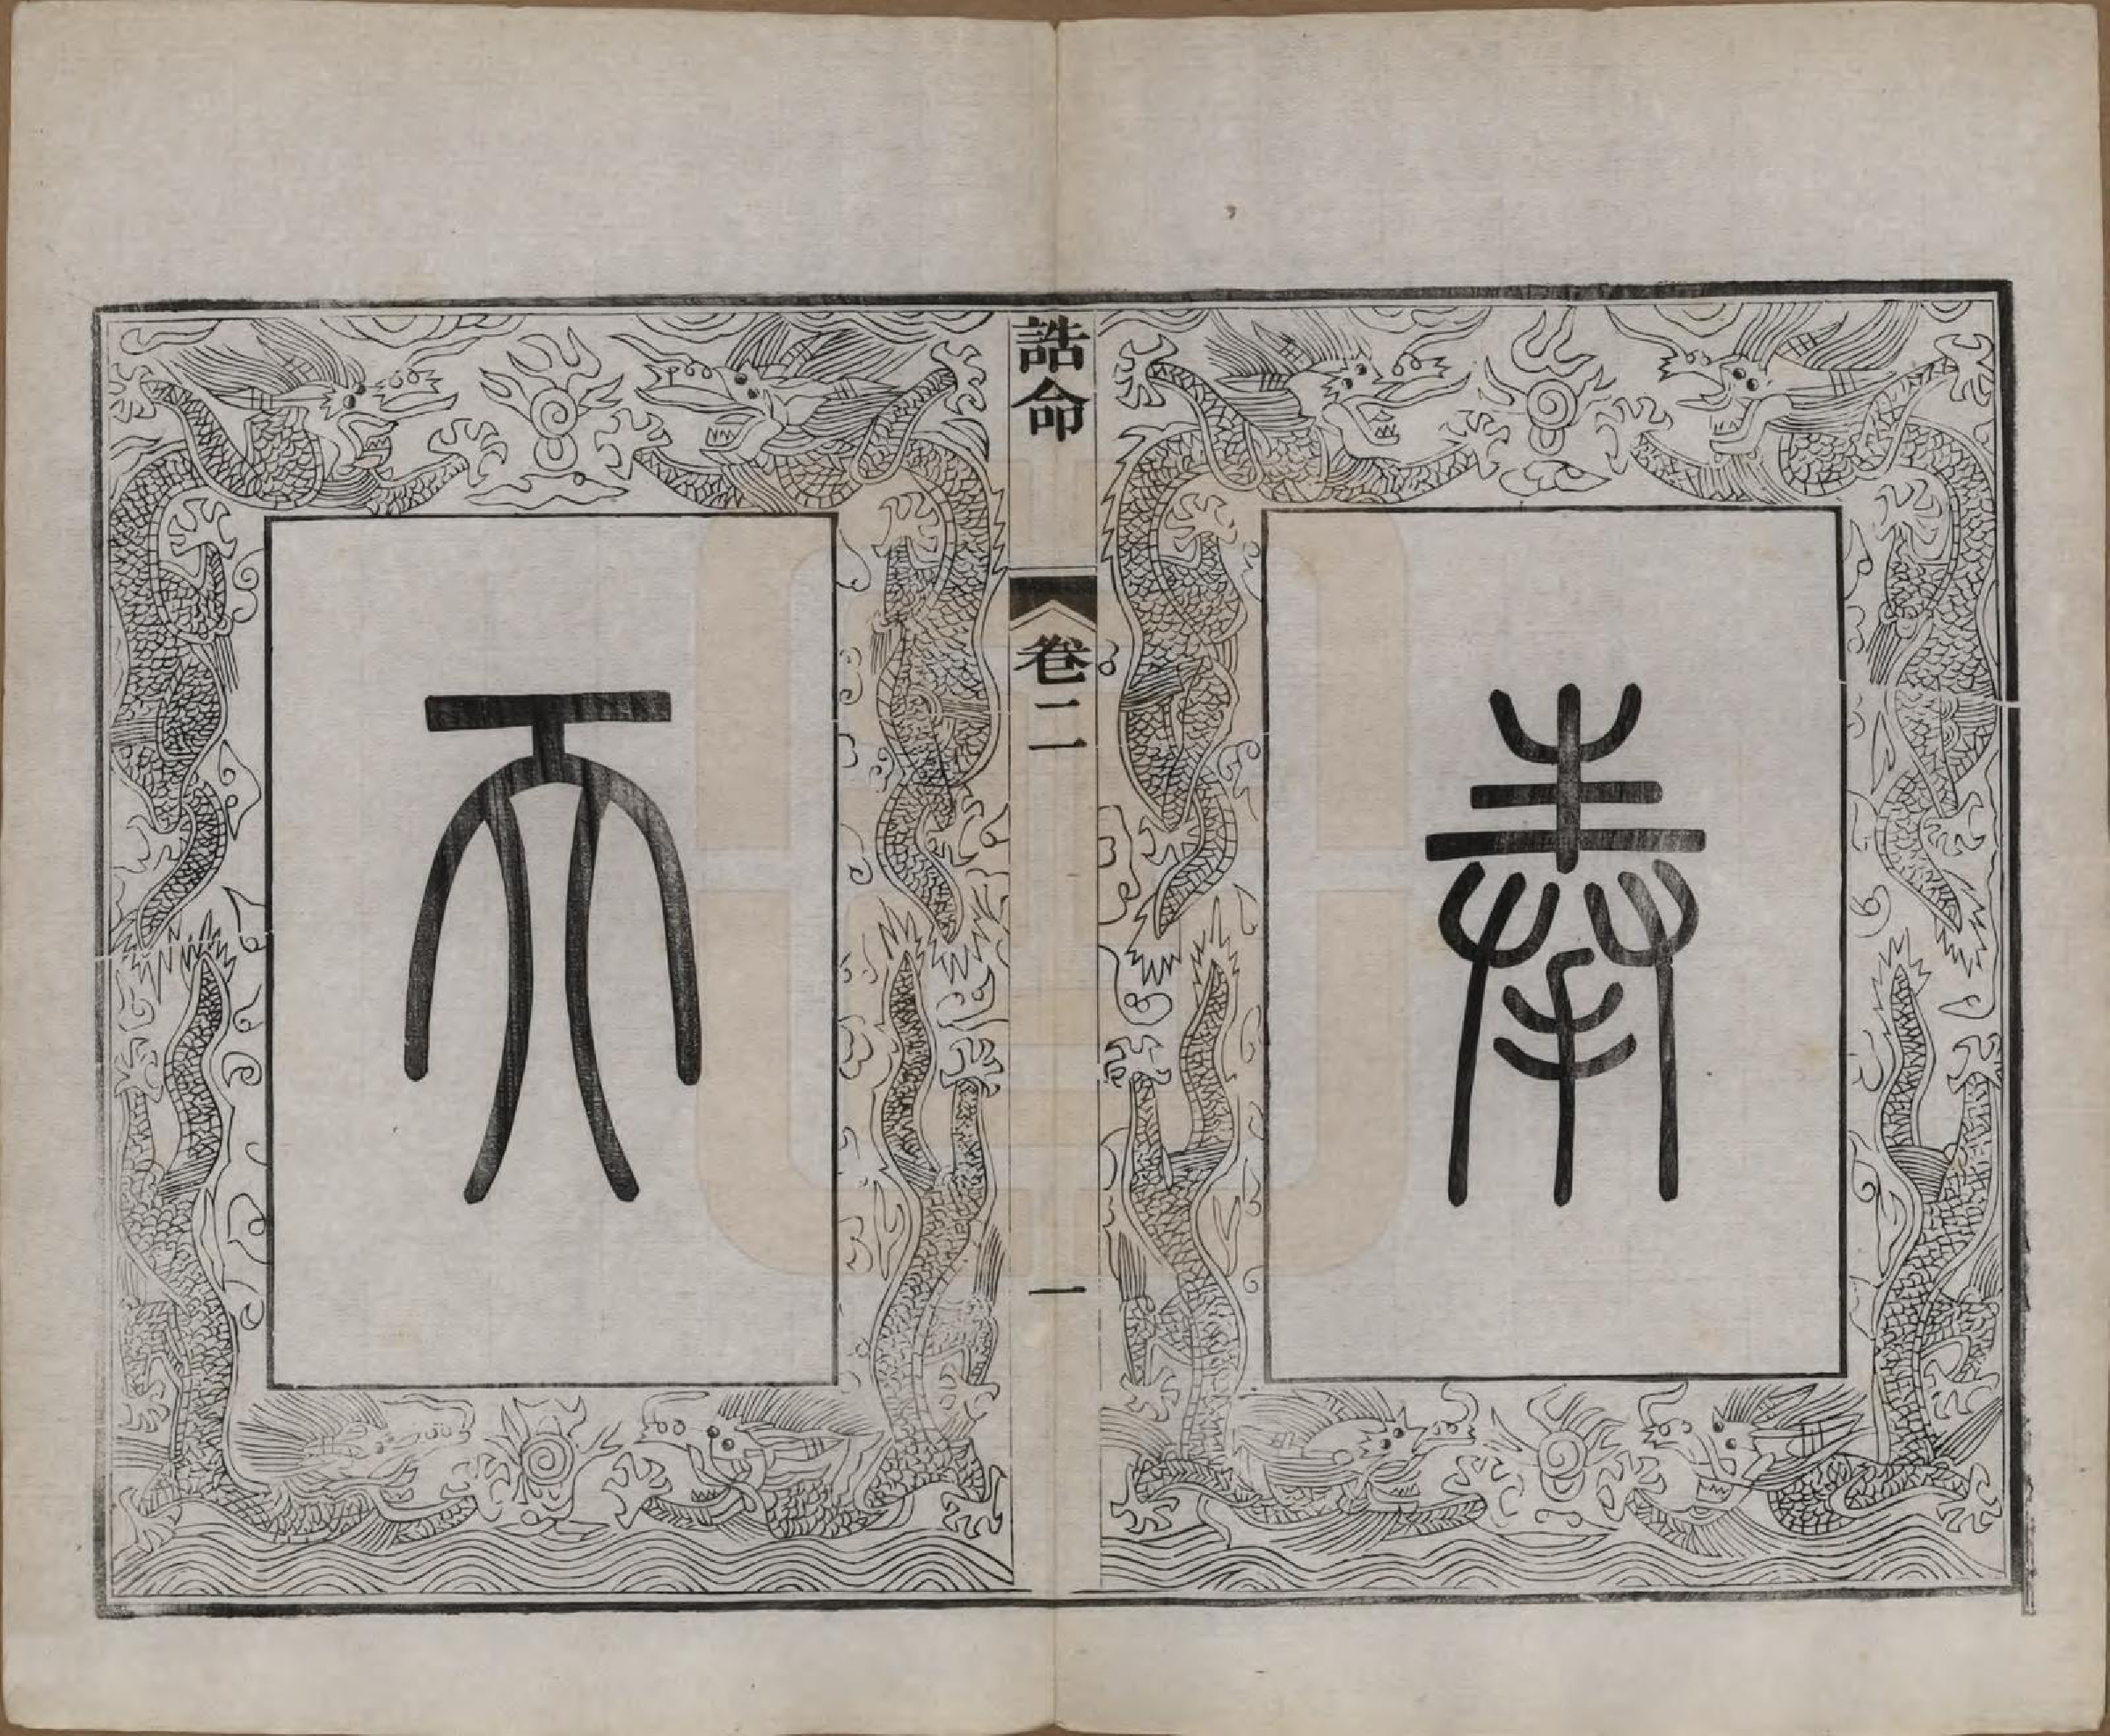 奉
誥命
卷二
一
天